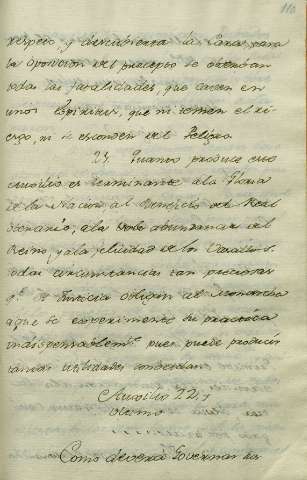 110
respeto, y descubierta la Cara, para
la oposicion del precepto se
todas las fatalidades, que caven en
unos Espiritus, que ni temen el ri-
esgo, ni se esconden del Peligro.
23. Quanto produce este
auxilio es terminante a la Gloria
de la Nacion al Beneficio del Real
Herario, a la abundancia del
Reino, y a la felicidad de los Vasallos.
todas circunstancias tan preciosas
q.e de Justicia obligan al Monarcha
a que se experimente su practica
indispensablem.te pues puede producir
tantas utilidades
Auxilio 22,,
Como devera Governar